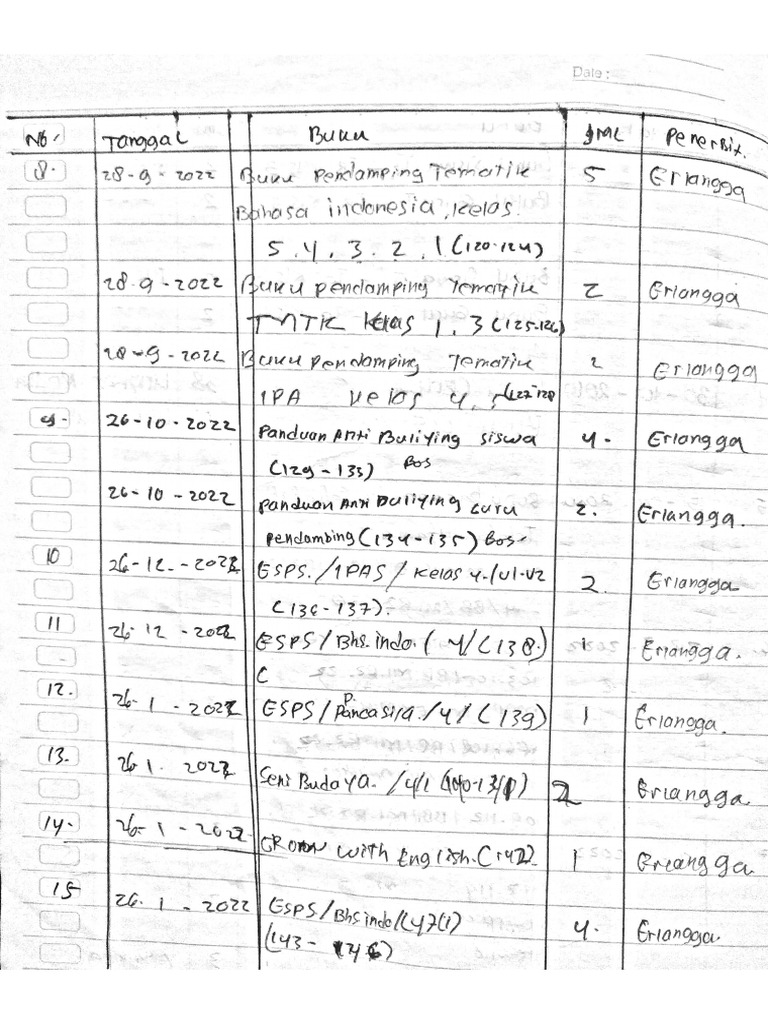 Date :
No. Tanggal Buku JML Penerbit.
8. 28-9-2022 Buku Pendamping Tematik 5 Erlangga
Bahasa indonesia, kelas.
5. 4. 3. 2. 1 (120-124)
28.9-2022 Buku pendamping Tematik 2 Erlangga
MTK kelas 1. 3 (125-126)
28-9-2022 Buku pendamping Tematik 2 Erlangga
IPA kelas 4. 5 (127-128
9. 26-10-2022 Panduan Anti Buliying siswa 4. Erlangga
(129-133) Bos
26-10-2022 Panduan Anti Buliying Guru 2. Erlangga.
Pendambing (134-135) Bos
10 26-12.-2022 ESPS./IPAS/kelas 4./V1-V2 2. Erlangga
(136-137).
11 26-12-2022 ESPS/Bhs.indo.(4/(138.) 1 Erlangga.
C
12. 26-1-2022 ESPS/P.Pancasila./4/(139) 1 Erlangga.
13. 26 1. 2022 Seni Budaya./4/1 2 Erlangga
14. 26-1-2022 GROWN with English.(142) 1 Erlangga.
15 26.1-2022 ESPS/Bhs indo/ 4. Erlangga.
(143-146)